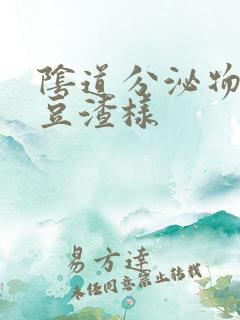 陰道分泌物
豆渣樣
易方達
未经同意禁止转载